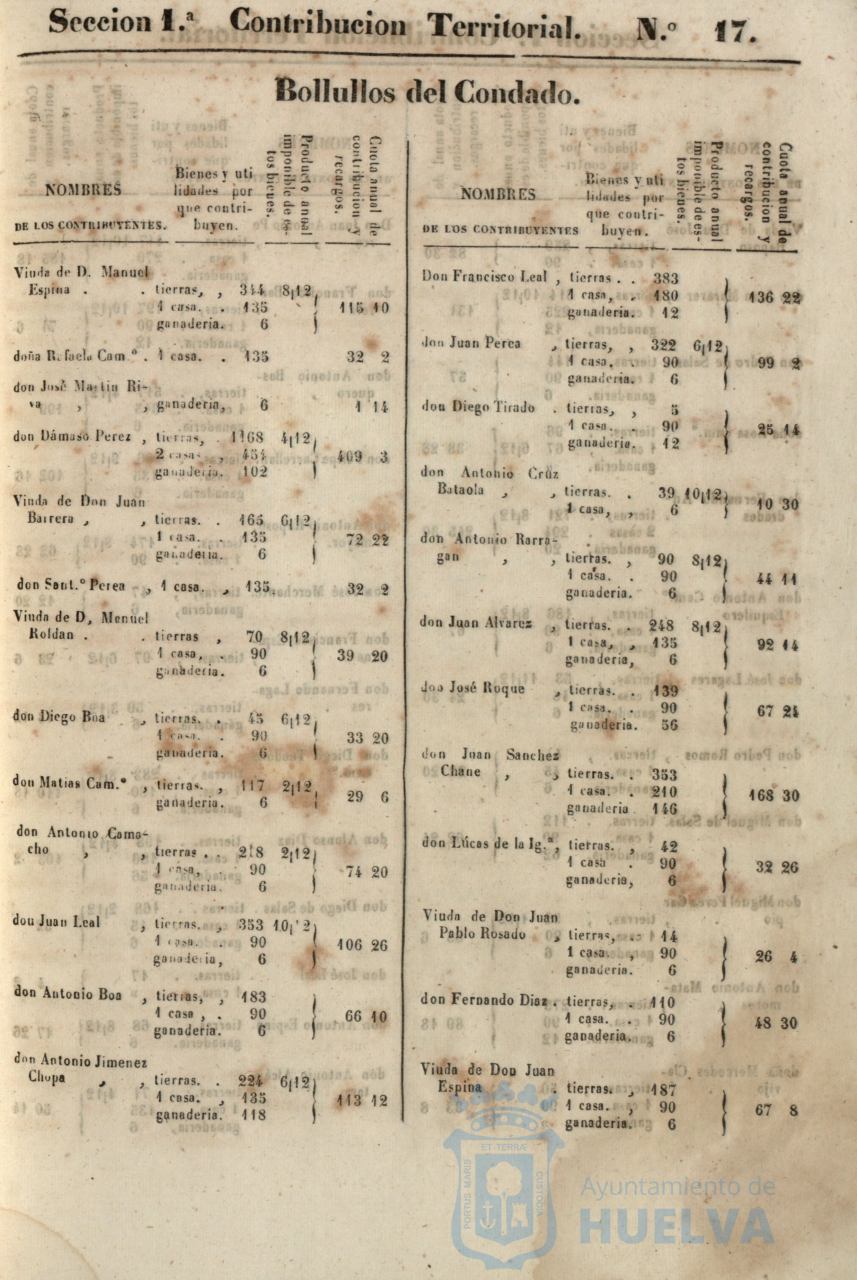 Seccion 1.ª Contribucion Territorial. N.º 17.
Bollullos del Condado.
NOMBRES
DE LOS CONTRIBUYENTES.
Bienes y uti
lidades por
que contri-
buyen.
Producto anual
imponible de es-
tos bienes.
Cuota anual de
contribucion y
recargos.
Viuda de D. Manuel
Espina . . tierras, , 344 8|12
1 casa. . 135 115 10
ganaderia. 6
doña Rafaela Cam.º . 1 casa. . 135 32 2
don José Martin Ri-
va , , ganaderia, 6 1 14
don Dámaso Perez , tierras, . 1168 4|12
2 casas , 454 409 3
ganaderia. 102
Viuda de Don Juan
Barrera , , tierras. . 165 6|12
1 casa. . 135 72 22
ganaderia. 6
don Sant.º Perea , 1 casa. , 135. 32 2
Viuda de D, Manuel
Roldan . . tierras , 70 8|12
1 casa, . 90 39 20
ganaderia. 6
don Diego Boa , tierras. . 45 6|12
1 casa. . 90 33 20
ganaderia. 6
don Matias Cam.º , tierras. , 117 2|12
ganaderia. 6 29 6
don Antonio Cama-
cho , , tierras . . 218 2|12
1 casa, . 90 74 20
ganaderia. 6
don Juan Leal , tierras. , 353 10|12
1 casa. . 90 106 26
ganaderia, 6
don Antonio Boa , tierras, , 183
1 casa , . 90 66 10
ganaderia. 6
don Antonio Jimenez
Chopa , , tierras. . 224 6|12
1 casa. , 135 113 12
ganaderia. 118
NOMBRES
DE LOS CONTRIBUYENTES
Bienes y uti
lidades por
que contri-
buyen.
Producto anual
imponible de es-
tos bienes.
Cuota anual de
contribucion y
recargos.
Don Francisco Leal , tierras . . 383
1 casa, . 180 136 22
ganaderia. 12
don Juan Perea , tierras, , 322 6|12
1 casa, . 90 99 2
ganaderia. 6
don Diego Tirado . tierras, , 5
1 casa. . 90 25 14
ganaderia. 12
don Antonio Cruz
Bataola , , tierras. . 39 10|12
1 casa, , 6 10 30
don Antonio Barra-
gan , , tierras. , 90 8|12
1 casa. . 90 44 11
ganaderia. 6
don Juan Alvarez , tierras. . 248 8|12
1 casa, , 135 92 14
ganaderia, 6
don José Roque , tierras. . 139
1 casa. . 90 67 24
ganaderia. 56
don Juan Sanchez
Chane , , tierras. . 353
1 casa. . 210 168 30
ganaderia 146
don Lúcas de la Ig.ª, tierras. , 42
1 casa . 90 32 26
ganaderia, 6
Viuda de Don Juan
Pablo Rosado , tierras, . 14
1 casa. , 90 26 4
ganaderia. 6
don Fernando Diaz . tierras, . 110
1 casa. . 90 48 30
ganaderia. 6
Viuda de Don Juan
Espina . tierras. , 187
1 casa. , 90 67 8
ganaderia. 6
ET TERRÆ
PORTUS MARIS
CUSTODIA
Ayuntamiento de
HUELVA